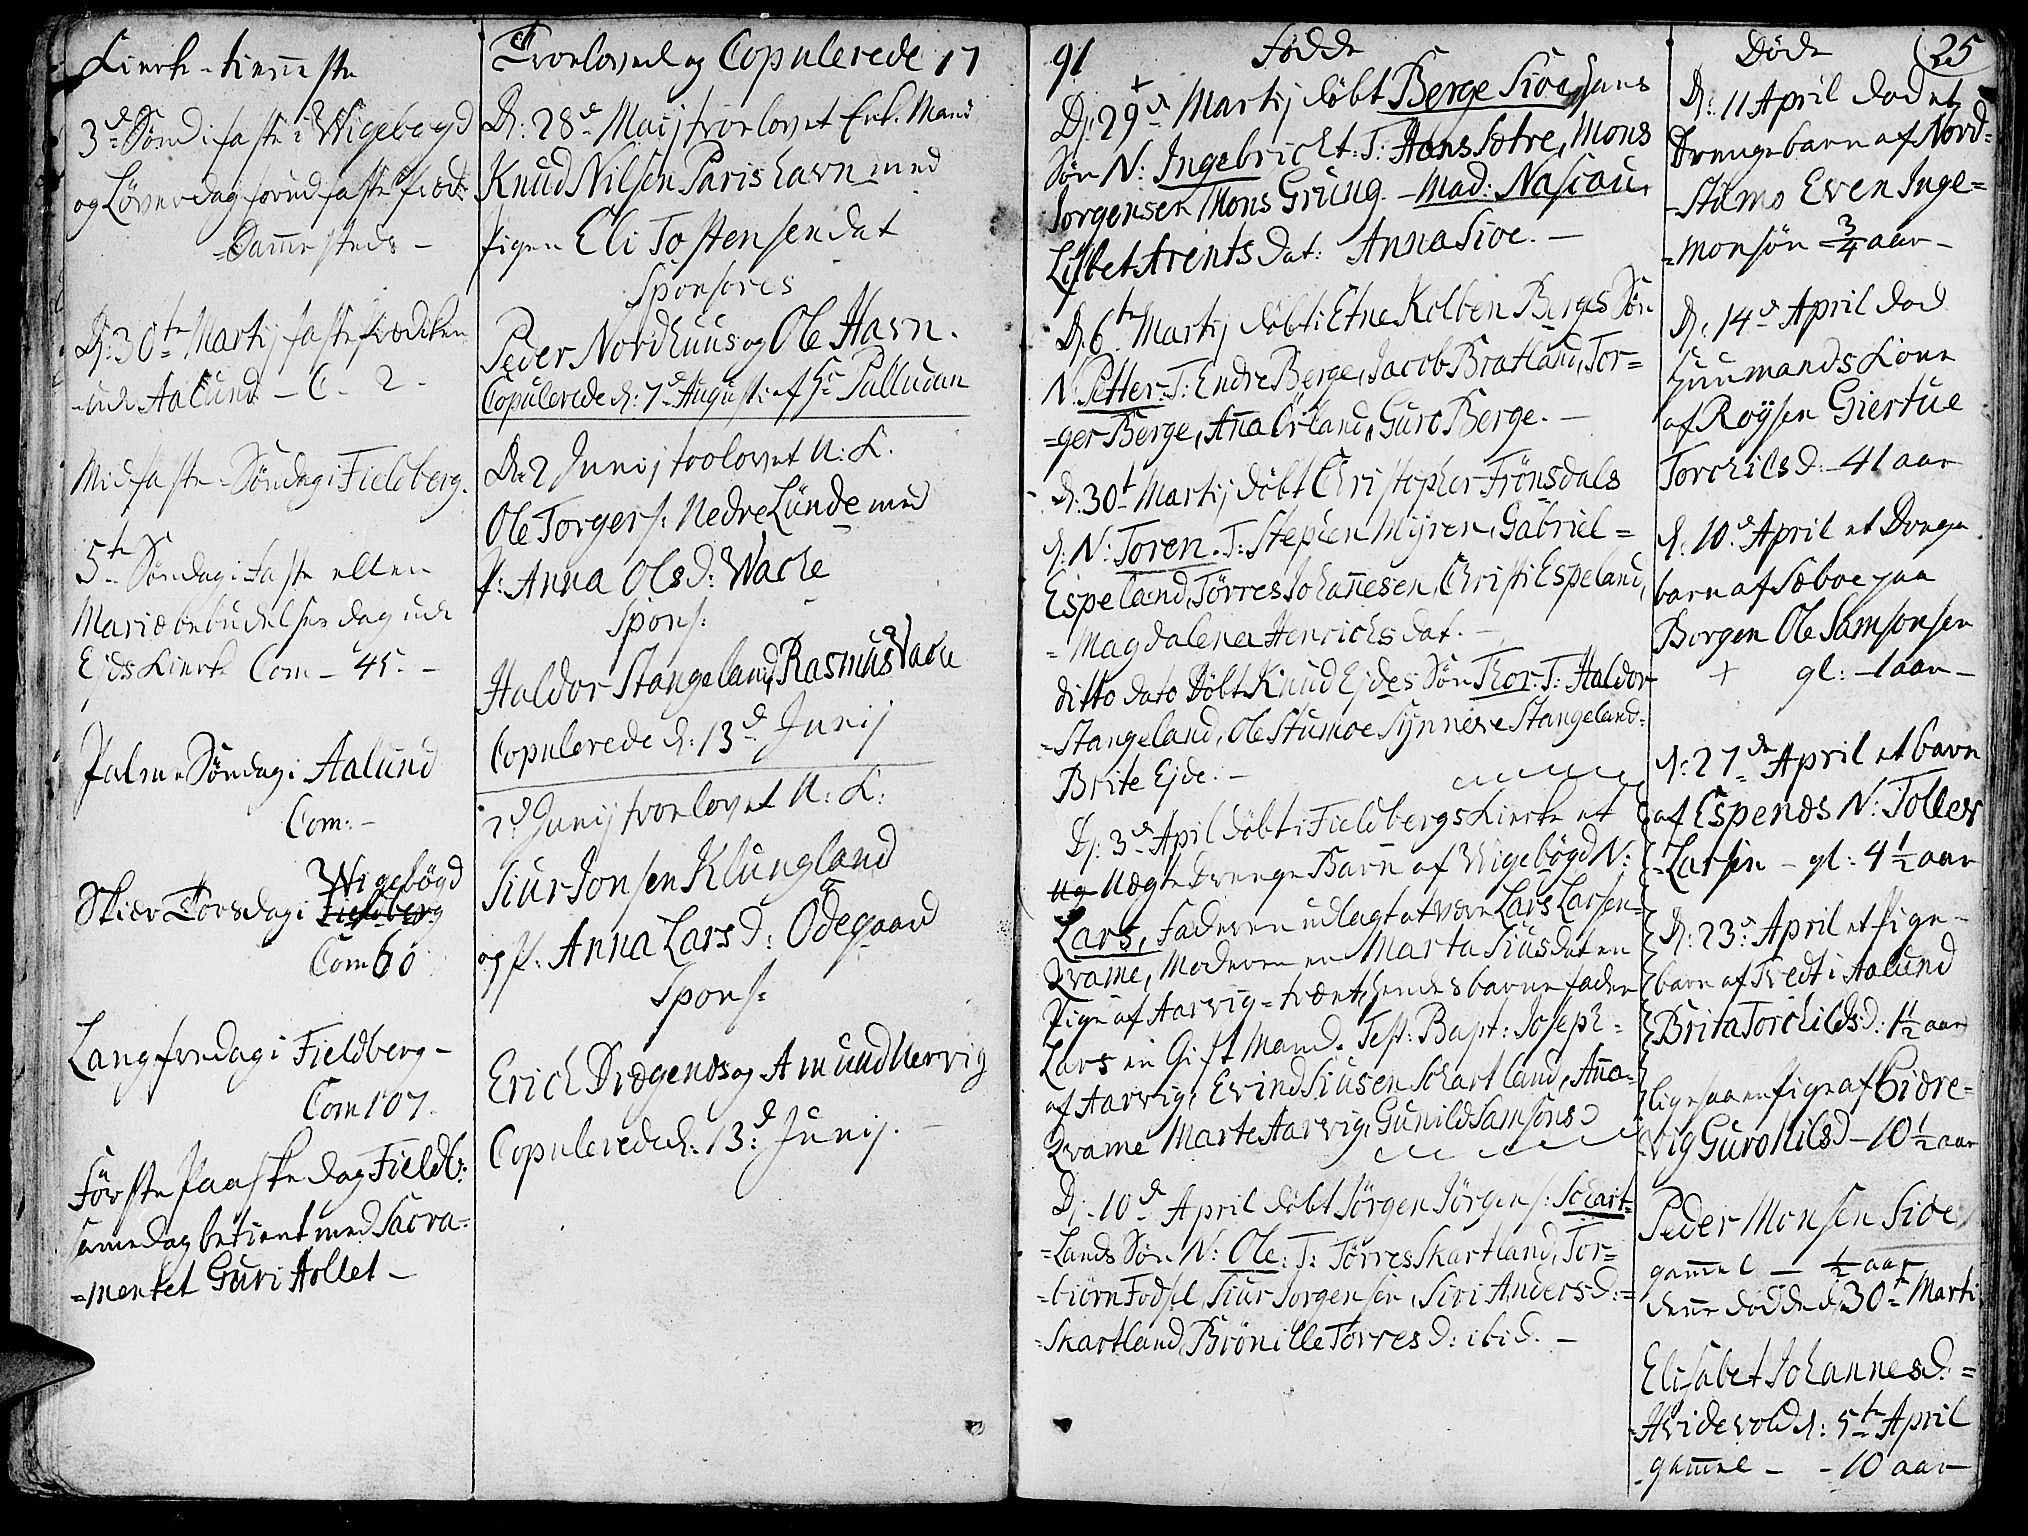 Kirke-tienneste
3d Sönd i faste i Wigebøgd
og Löverdag forud faste præd:
Sammesteds -
D: 30te Martij faste prædiken
ude Aalund - C - 2 -
Midfaste - Søndag i Fieldberg.
5te Søndag i Faste eller
Mariæ bebudelses dag ude
Eids Kirke Com - 45. -
Palme Søndag i Aalund
Com: -
Wigebögd
Skier Torsdag i Fieldberg
Com 60
Langfredag i Fieldberg -
Com 107.
Förste Paaske dag Fieldb:
samme dag betient med Sacra=
=mentet Guri Hollet -
Troelovede og Copulerede 17
D: 28de Maij troelovet Enk. Mand
Knud Nilsen Parishavn med
pigen Eli Tostensendat
Sponsores
Peder Nordhuus og Ole Havn.
Copulerede d: 7de Augusti af Hr Palludan
De 2 Junij trolovet U: K.
Ole Torgers: Nedre Lünde med
p: Anna Olsd: Wache
Spons:
Haldor Stangeland, Rasmus Vache
Copulerede d: 13de Junij
2d Junij troelovet U: K:
Siur Jonsen Klungland
og p: Anna Lars D: Ödegaard
Spons:
Erich Drægenes og Amund Nervig
Copulerede d: 13de Junij. -
91 Födde
D: 29de Martij döbt Berge Sioe Hans
Sön N: Ingebricht: T: Hans Sætre, Mons
Jorgensen Mons Grung. - Mad: Nascou,
Lisbet Arents dat: Anna Sioe. -
D. 6te Martij döbt i Etne Kolben Berges Sön
N: Petter: T: Endre Berge, Jacob Bratland, Tor=
=ger Berge, Anna Örland, Guro Berge. -
d: 30t Martij döbt Christopher Frönsdals
d: N: Toren. T: Stephen Myren, Gabriel =
Espeland, Törres Johannesen, Christi Espeland,
= Magdalena Henrichsdat. -
ditto dato Döbt Knud Ejdes Sön Thor: T: Haldor
=Stangeland, Ole Stumoe Synneve Stangeland=
Brite Ejde. -
D: 3de April döbt i Fieldbergs Kirke et
ug uægte Drenge Barn af Wigebögd N:
Lars, Faderen udlagt at være Lars Larsen=
Qvame, Moderen er Marta Siusdat en
Pige af Aarvig = trænt, hendes barnefader
Lars en Gift Mand. Test: Bapt: Joseph=
af Aarvig, Evind Siusen Schartland, Anna=
Qvame Marte Aarvig, Gunild Samsons D
D: 10de April döbt Jörgen Jörgens: Schart=
=Lands Sön N: Ole: T: Törres Skartland, Tor=
=biörn Fodsel, Siur Jorgensen, Siri Andersd:=
=Skartland, Brönille Törres D: ibid. -
Döde 25
D: 11 April Død et
Drengebarn af Nord=
-Stumo Even Inge=
=monsön - 3/4 aar -
D: 14de April död
Huusmands Kone
af Roysen Giertue
Torchilsd: - 41 aar
d: 10de April et Drenge
barn af Sæboe paa
Borgen Ole Samsonsen
+ gl: - 1 aar -
d: 27de April et barn
af Espends N: Tollev
=Larsen - gl: 4 1/2 aar
D: 23de April et pige-
barn af Tvedt i Aalund
Brita Torchildsd: 1 1/2 aar
ligesaa en Pige af Eidre=
=vig Guro Nilsd - 10 1/2 aar
Peder Monsen Sioe
gammel - 1/2 aar
denne döde d: 30te Marti
Elisabet Johannesd: =
-Hvidevold d: 5te April
- gammel - - 10 aar